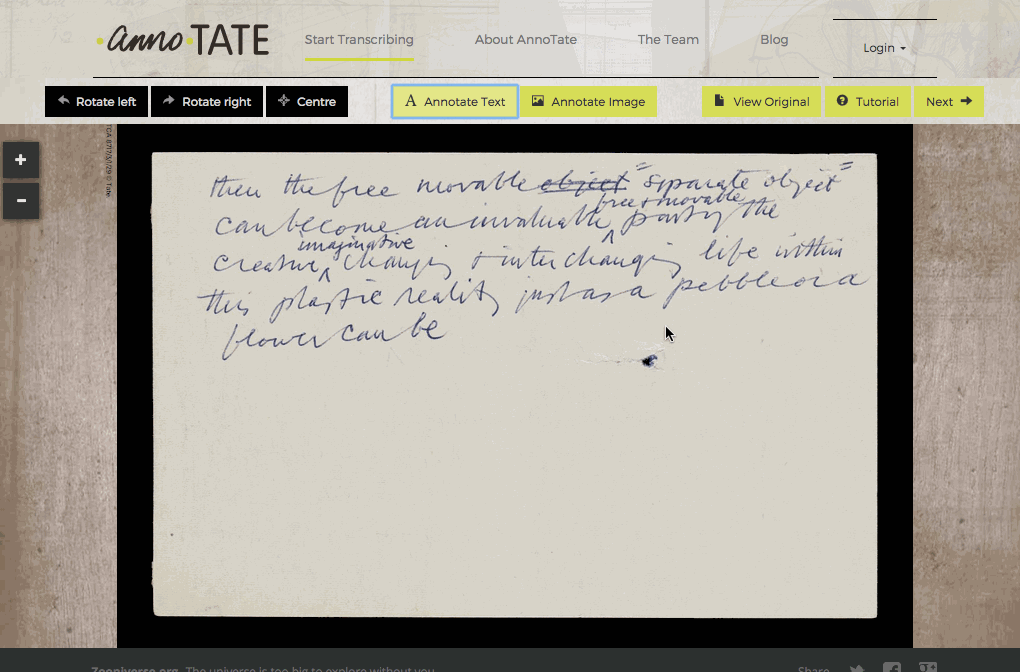 anno•TATE
Start Transcribing
About AnnoTate
The Team
Blog
Login
Rotate left
Rotate right
Centre
A Annotate Text
Annotate Image
View Original
Tutorial
Next
+
-
then the free movable object "separate object"
free + movable
can become an invaluable ^ part of the
imaginative
creative ^ changing + interchanging life within
this plastic reality just as a pebble or a
flower can be
Zooniverse.org The universe is too big to explore without you.
Share